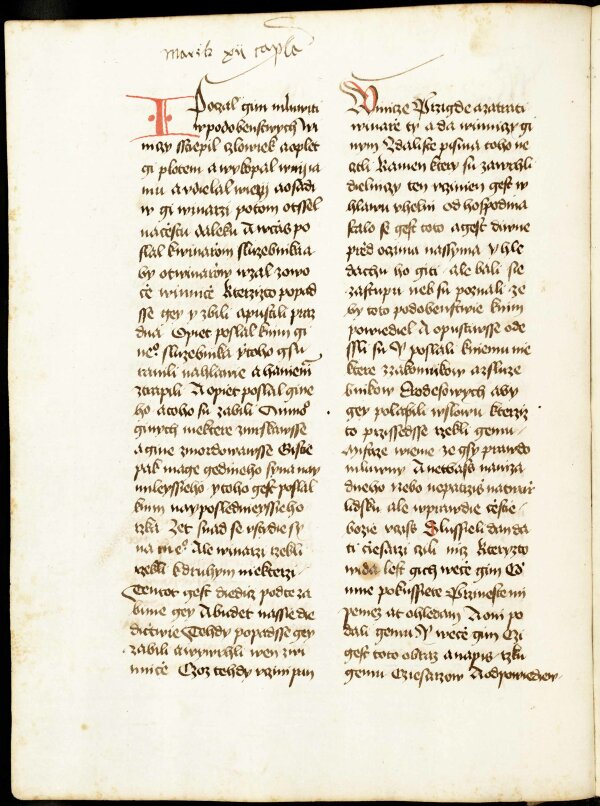 Marci xii capla
I Poczal gim mluwiti
w podobenstwych wi
niczy sstiepil czlowiek a oplet
gi plotem a wykopal w nij ia
mu a vdielal wiezi a osadi
w gi winarzi potom otssel
na cestu daleku A w czas po
slal k winarom sluzebnika a
by ot winarow wzal z owo
cie winnice Kterzizto popad
sse gey y zbili a pustili praz
dna Opiet poslal k nim gi
neho sluzebnika y toho gsu
ranili na hlawie a haniemi
ztrapili A opiet poslal gine
ho a toho su zabili A mno
ginych niektere zmrskawsse
a gine zmordowawsse Gistie
pak mage gedineho syna nay
mileyssieho y toho gest poslal
k nim nay poslednieyssieho
rzka Zet snad se vstydie sy
na meho Ale winarzi rzekli
rzekli k druhym niekterzi
Tentot gest diedicz podte za
bime gey A budet nassie die
dictwie Tehdy popadsse gey
zabili a wywrhli wen z wi
nnice Czoz tehdy vczini pan
Winnicze Przigde a ztrati
winarze ty a da winniczy gi
nym Zdaliste pisma toho ne
cztli Kamen ktery su zawrhli
dielniczy ten vczinien gest w
hlawu vhelni od hospodina
stalo se gest toto a gest diwne
przed oczima nassyma Y hle
dachu ho giti ale bali sie
zastupu neb su poznali ze
by toto podobenstwie k nim
powiediel A opustiwsse ode
ssli su Y poslali k niemu nie
ktere z zakonnikow a z sluze
bnikow Erodesowych aby
gey polapili w slowu kterziz
to przissedsse rzekli gemu
Mistrze wieme ze gsy prawdo
mluwny A netbass na niza
dneho nebo nepatrziss na twarz
lidsku ale w prawdie cestie
bozie vcziss Slussieli dan da
ti ciesarzi czili niz Kteryzto
wida lest gich wece gim Co
mne pokussiete Przineste mi
penez at ohledam A oni po
dali gemu Y wece gim Czi
gest toto obraz a napis rzku
gemu Cziesarzow A odpowiediew